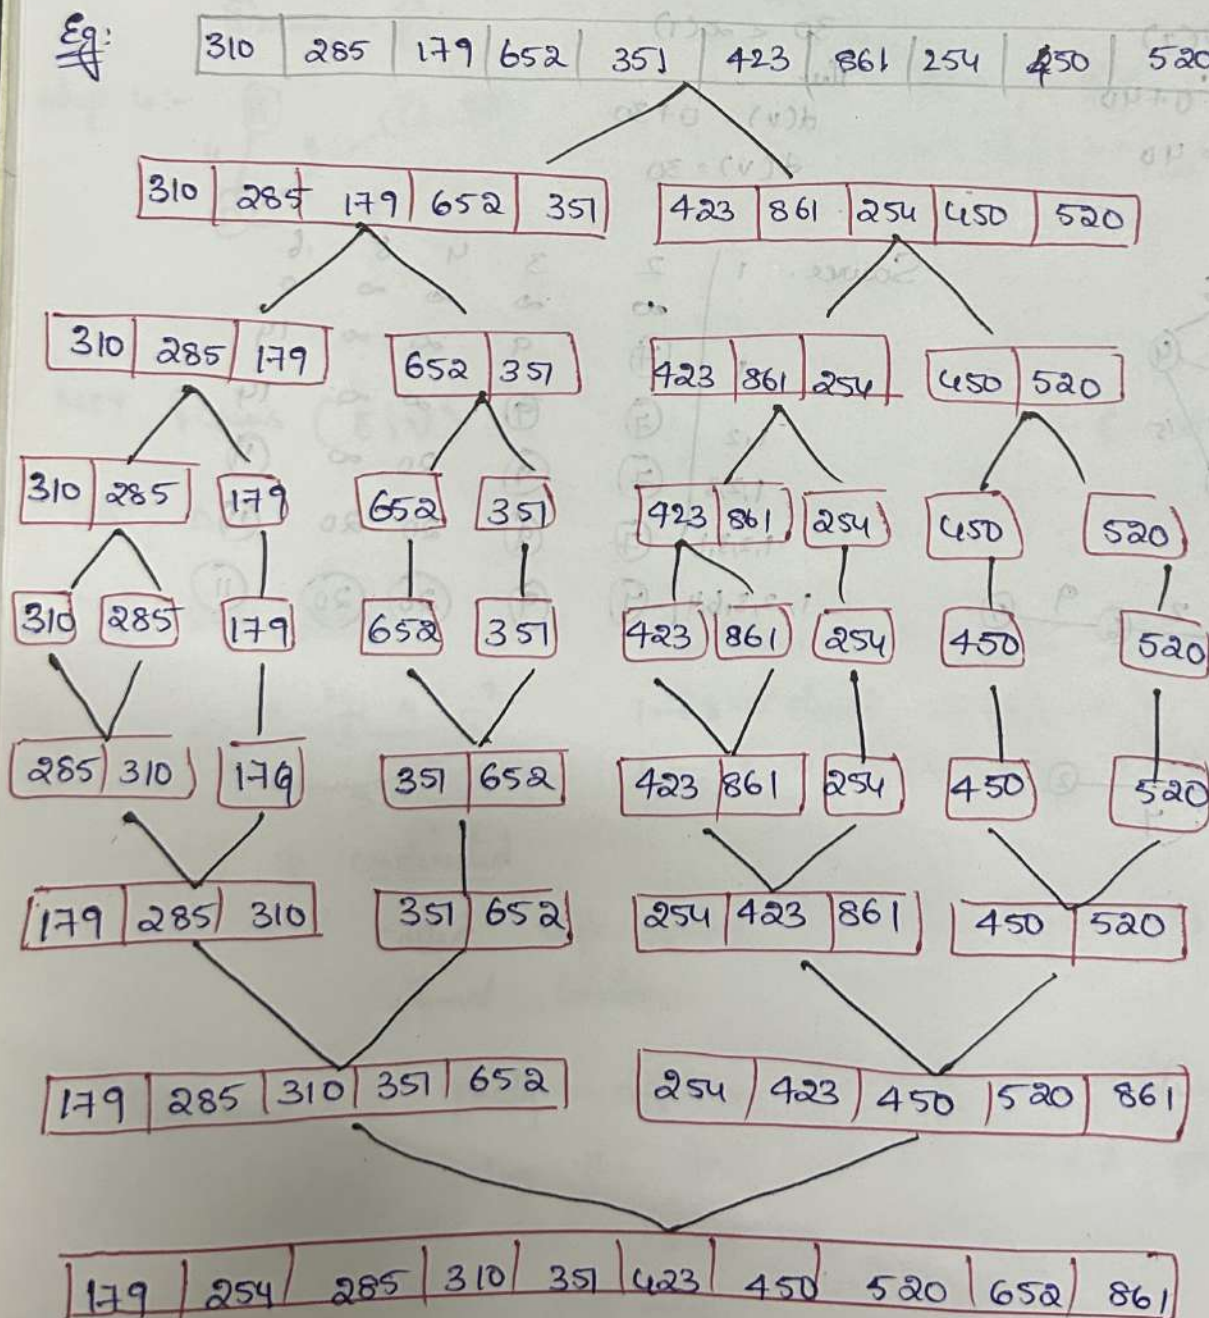 Eg: 310 285 179 652 351 423 861 254 450 520
310 285 179 652 351 423 861 254 450 520
310 285 179 652 351 423 861 254 450 520
310 285 179 652 351 423 861 254 450 520
310 285 179 652 351 423 861 254 450 520
285 310 179 351 652 423 861 254 450 520
179 285 310 351 652 254 423 861 450 520
179 285 310 351 652 254 423 450 520 861
179 254 285 310 351 423 450 520 652 861